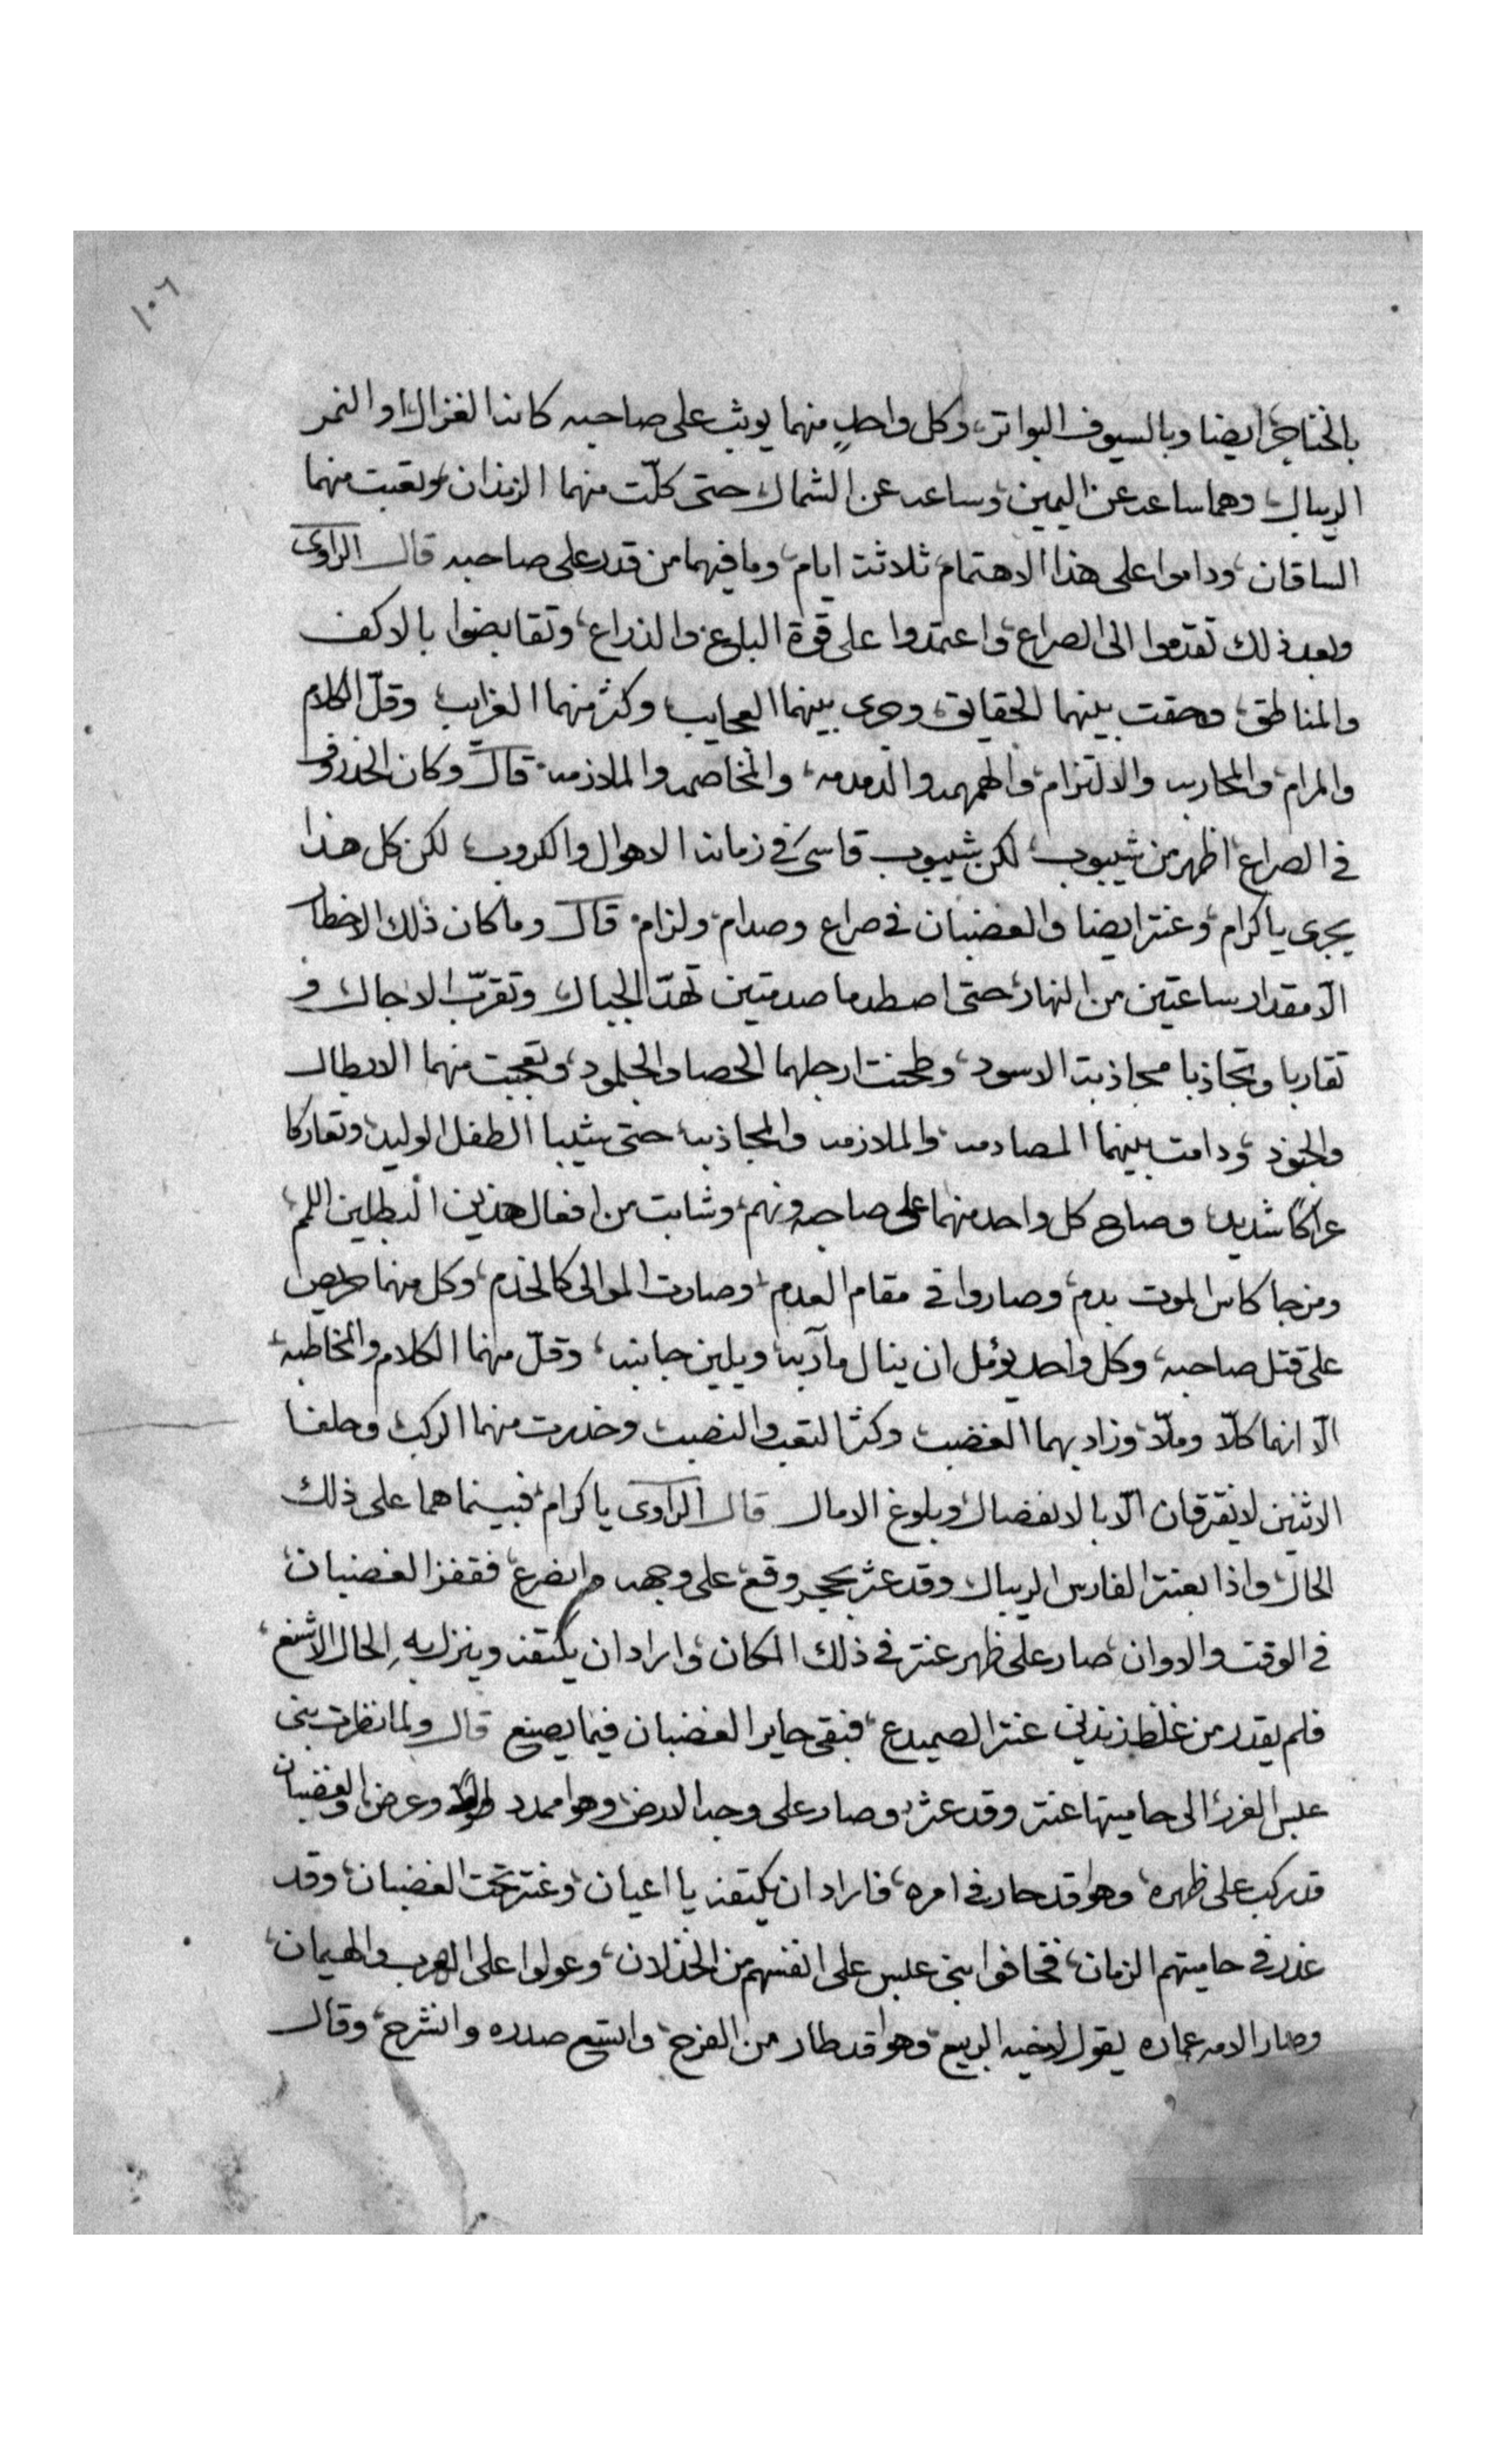 ١٠٦
بالخناجر ايضا وبالسيوف البواتر، وكل واحدٍ منهما يوثب على صاحبه كانه الغزال، او النمر
الريبال، وهما ساعه عن اليمين، وساعه عن الشمال، حتى كلّت منهما الزندان، وتعبت منهما
الساقان، وداموا على هذا الاهتمام، ثلاثة ايام، وما فيهما من قدر على صاحبه قال الراوى
وبعد ذلك تقدموا الى الصراع، واعتمدوا على قوة الباع، والذراع، وتقابضوا بالاكف
والمناطق، وحقت بينهما الحقايق، وجرى بينهما العجايب وكثر منهما الغرايب وقلّ الكلام
والمرام، والمحاربه والالتزام، والهمهمه والدمدمه، والمخاصمه والملازمه، قال وكان الخذروف
فى الصراع، اظهر من شيبوب، لكن شيبوب قاسى فى زمانه الاهوال والكروب لكن كل هذا
يجرى يا كرام، وعنتر ايضا والغضبان فى صراع وصدام، ولزام، قال وما كان ذلك الاخطار
الّا مقدار ساعتين من النهار، حتى اصطدما صدمتين تهدّ الجبال، وتقرّب الاجال، و
تقاربا وتجاذبا مجاذبة الاسود، وطحنت ارجلهما الحصا والجلمود، وتعجبت منهما الابطال
والجنود، ودامت بينهما المصادمه، والملازمه والمجاذبه، حتى يشيبا الطفل الوليد، وتعاركا
عراكًا شديد، وصاح كل واحد منهما على صاحبه ونهم، وشابت من افعال هذين البطلين اللمم،
ومزجا كاس الموت بدم، وصاروا فى مقام العدم، وصارت الموالى كالخدم، وكل منهما حريص
على قتل صاحبه، وكل واحد يؤمل ان ينال مآربه، ويلين جانبه، وقلّ منهما الكلام والمخاطبه،
الّا انهما كلّا وملّا، وزاد بهما الغضب، وكثر التعب والنصب، وخدرت منهما الركب، وحلفا
الاثنين لا يفترقان الّا بالانفصال، وبلوغ الامال قال الراوى يا كرام، فبينما هما على ذلك
الحال، واذا بعنتر الفارس الريبال، وقد عثر بحجر وقع، على وجهه وانضرع، فقفز الغضبان،
فى الوقت والاوان، صار على ظهر عنتر فى ذلك المكان، واراد ان يكتفه وينزل بهِ الحال الاشنع،
فلم يقدر من غلظ زندى عنتر الصميدع، فبقى حاير الغضبان فيما يصنع قال ولما نظرت بنى
عبس الغرر، الى حاميتها عنتر وقد عثر، وصار على وجه الارض، وهوا ممدد طول وعرض، والغضبان
قد ركب على ظهره، وهوا قد حار فى امره، فاراد ان يكتفه يا اعيان، وعنتر تحت الغضبان، وقد
غدر فى حاميتهم الزمان، فخافوا بنى عبس على انفسهم من الخذلان، وعولوا على الهرب والهيمان،
وصار الامير عماره يقول لاخيه الربيع، وهوا قد طار من الفرح، واتسع صدره وانشرح، وقال